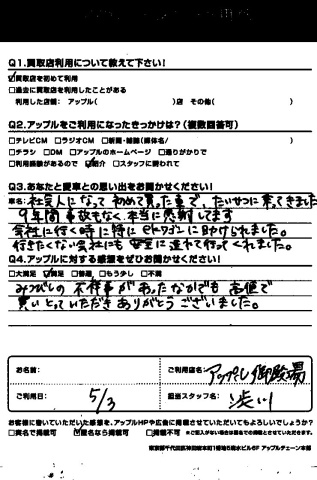 Q1.買取店利用について教えて下さい!
☑買取店を初めて利用
□過去に買取店を利用したことがある
利用した店舗: アップル( )店 その他( )
Q2.アップルをご利用になったきっかけは?(複数回答可)
□テレビCM □ラジオCM □新聞・雑誌(媒体名/ )
□チラシ □DM □アップルのホームページ □通りがかりで
□利用経験があるので ☑紹介 □スタッフに誘われて
Q3.あなたと愛車との思い出をお聞かせください!
車名: 社会人になって初めて買った車で、たいせつに乗ってきました
9年間事故もなく本当に感謝してます
会社に行く時に特にeKワゴンに助けられました。
行きたくない会社にも安全に連れて行ってくれました。
Q4.アップルに対する感想をぜひお聞かせください!
□大満足 ☑満足 □普通 □もう少し □不満
みつびしの不祥事があったなかでも高値で
買いとっていただきありがとうございました。
お名前:
ご利用店名: アップル御殿場
ご利用日: 5/3
担当スタッフ名: 渋川
お客様に書いていただいた感想を、アップルHPや広告に掲載させていただいてもよろしいでしょうか?
□実名で掲載可 ☑匿名なら掲載可 □掲載不可 ※ご記入がない場合は匿名での掲載とさせていただきます。